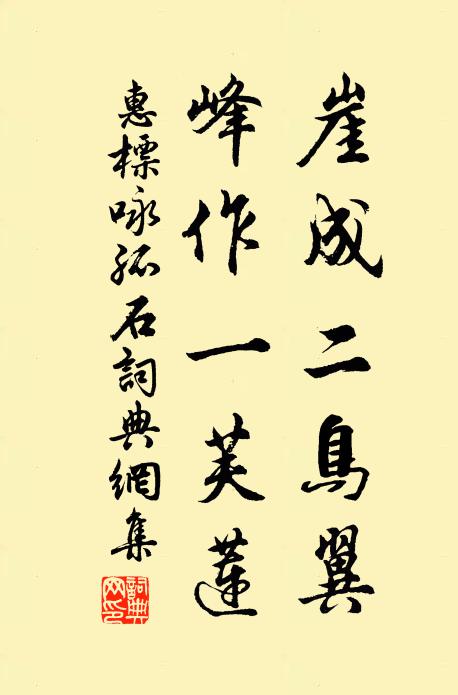 崖成二鳥翼
峰作一芙蓮
惠標咏孤石詞典網集
詞典网印